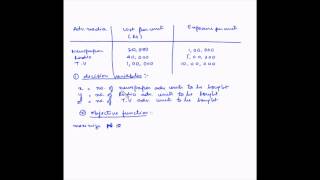 Adv. media Cost per unit Exposure per unit
(Rs)
Newspaper 50,000 1,00,000
Radio 40,000
T.V 1,00,000 10,00,000
① decision variables :-
x = no. of newspaper adv. units to be bought
y = no. of Radio adv. units to be bought
z = no. of T.V adv. units to be bought
② objective function :-